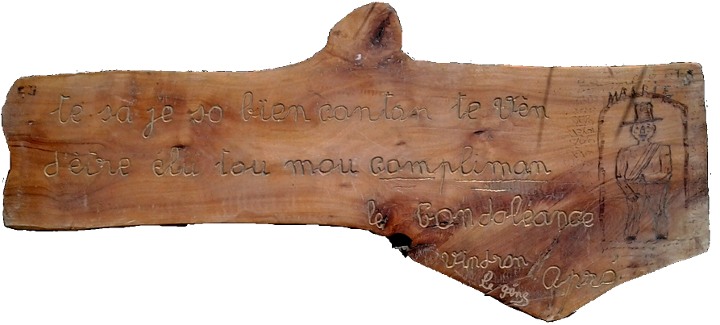 te sa je so bien contan te vèn
d'être élu tou mou compliman
le condoléance
vindron apré
le géne
MAARIE